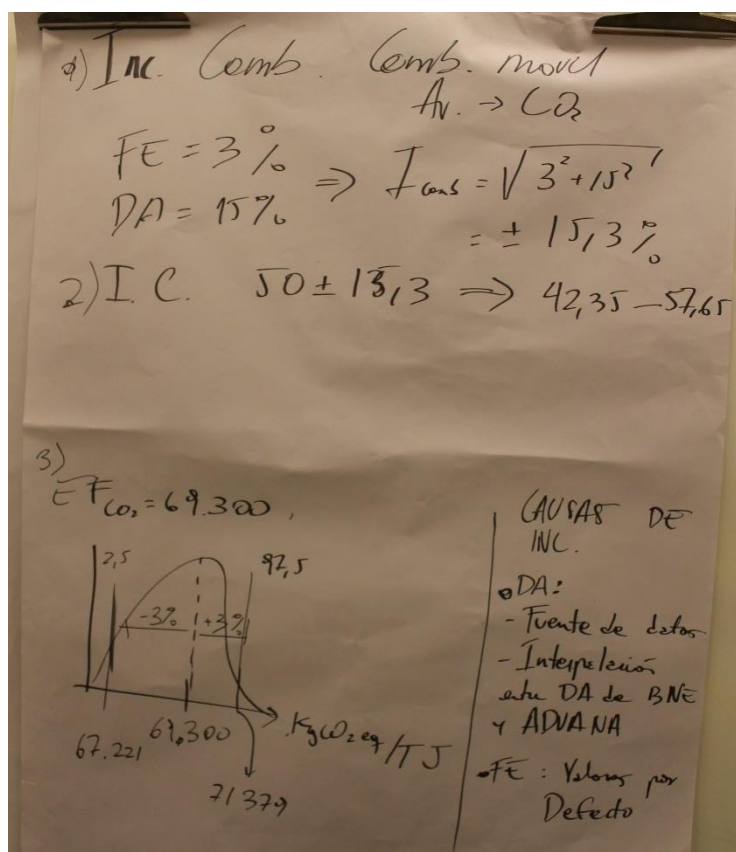 1) Inc. Comb. Comb. movil
Av. → CO₂
FE = 3%
DA = 15%
⇒ I comb = √3²+15²
= ± 15,3%
2) I. C. 50 ± 15,3 ⇒ 42,35 – 57,65
3)
EF CO₂ = 69.300,
2,5
97,5
-3%
+3%
67.221
69.300
KgCO₂eq/TJ
71379
CAUSAS DE
INC.
• DA:
- Fuente de datos
- Interpelación
entre DA de BNE
Y ADUANA
• FE: Valores por
Defecto